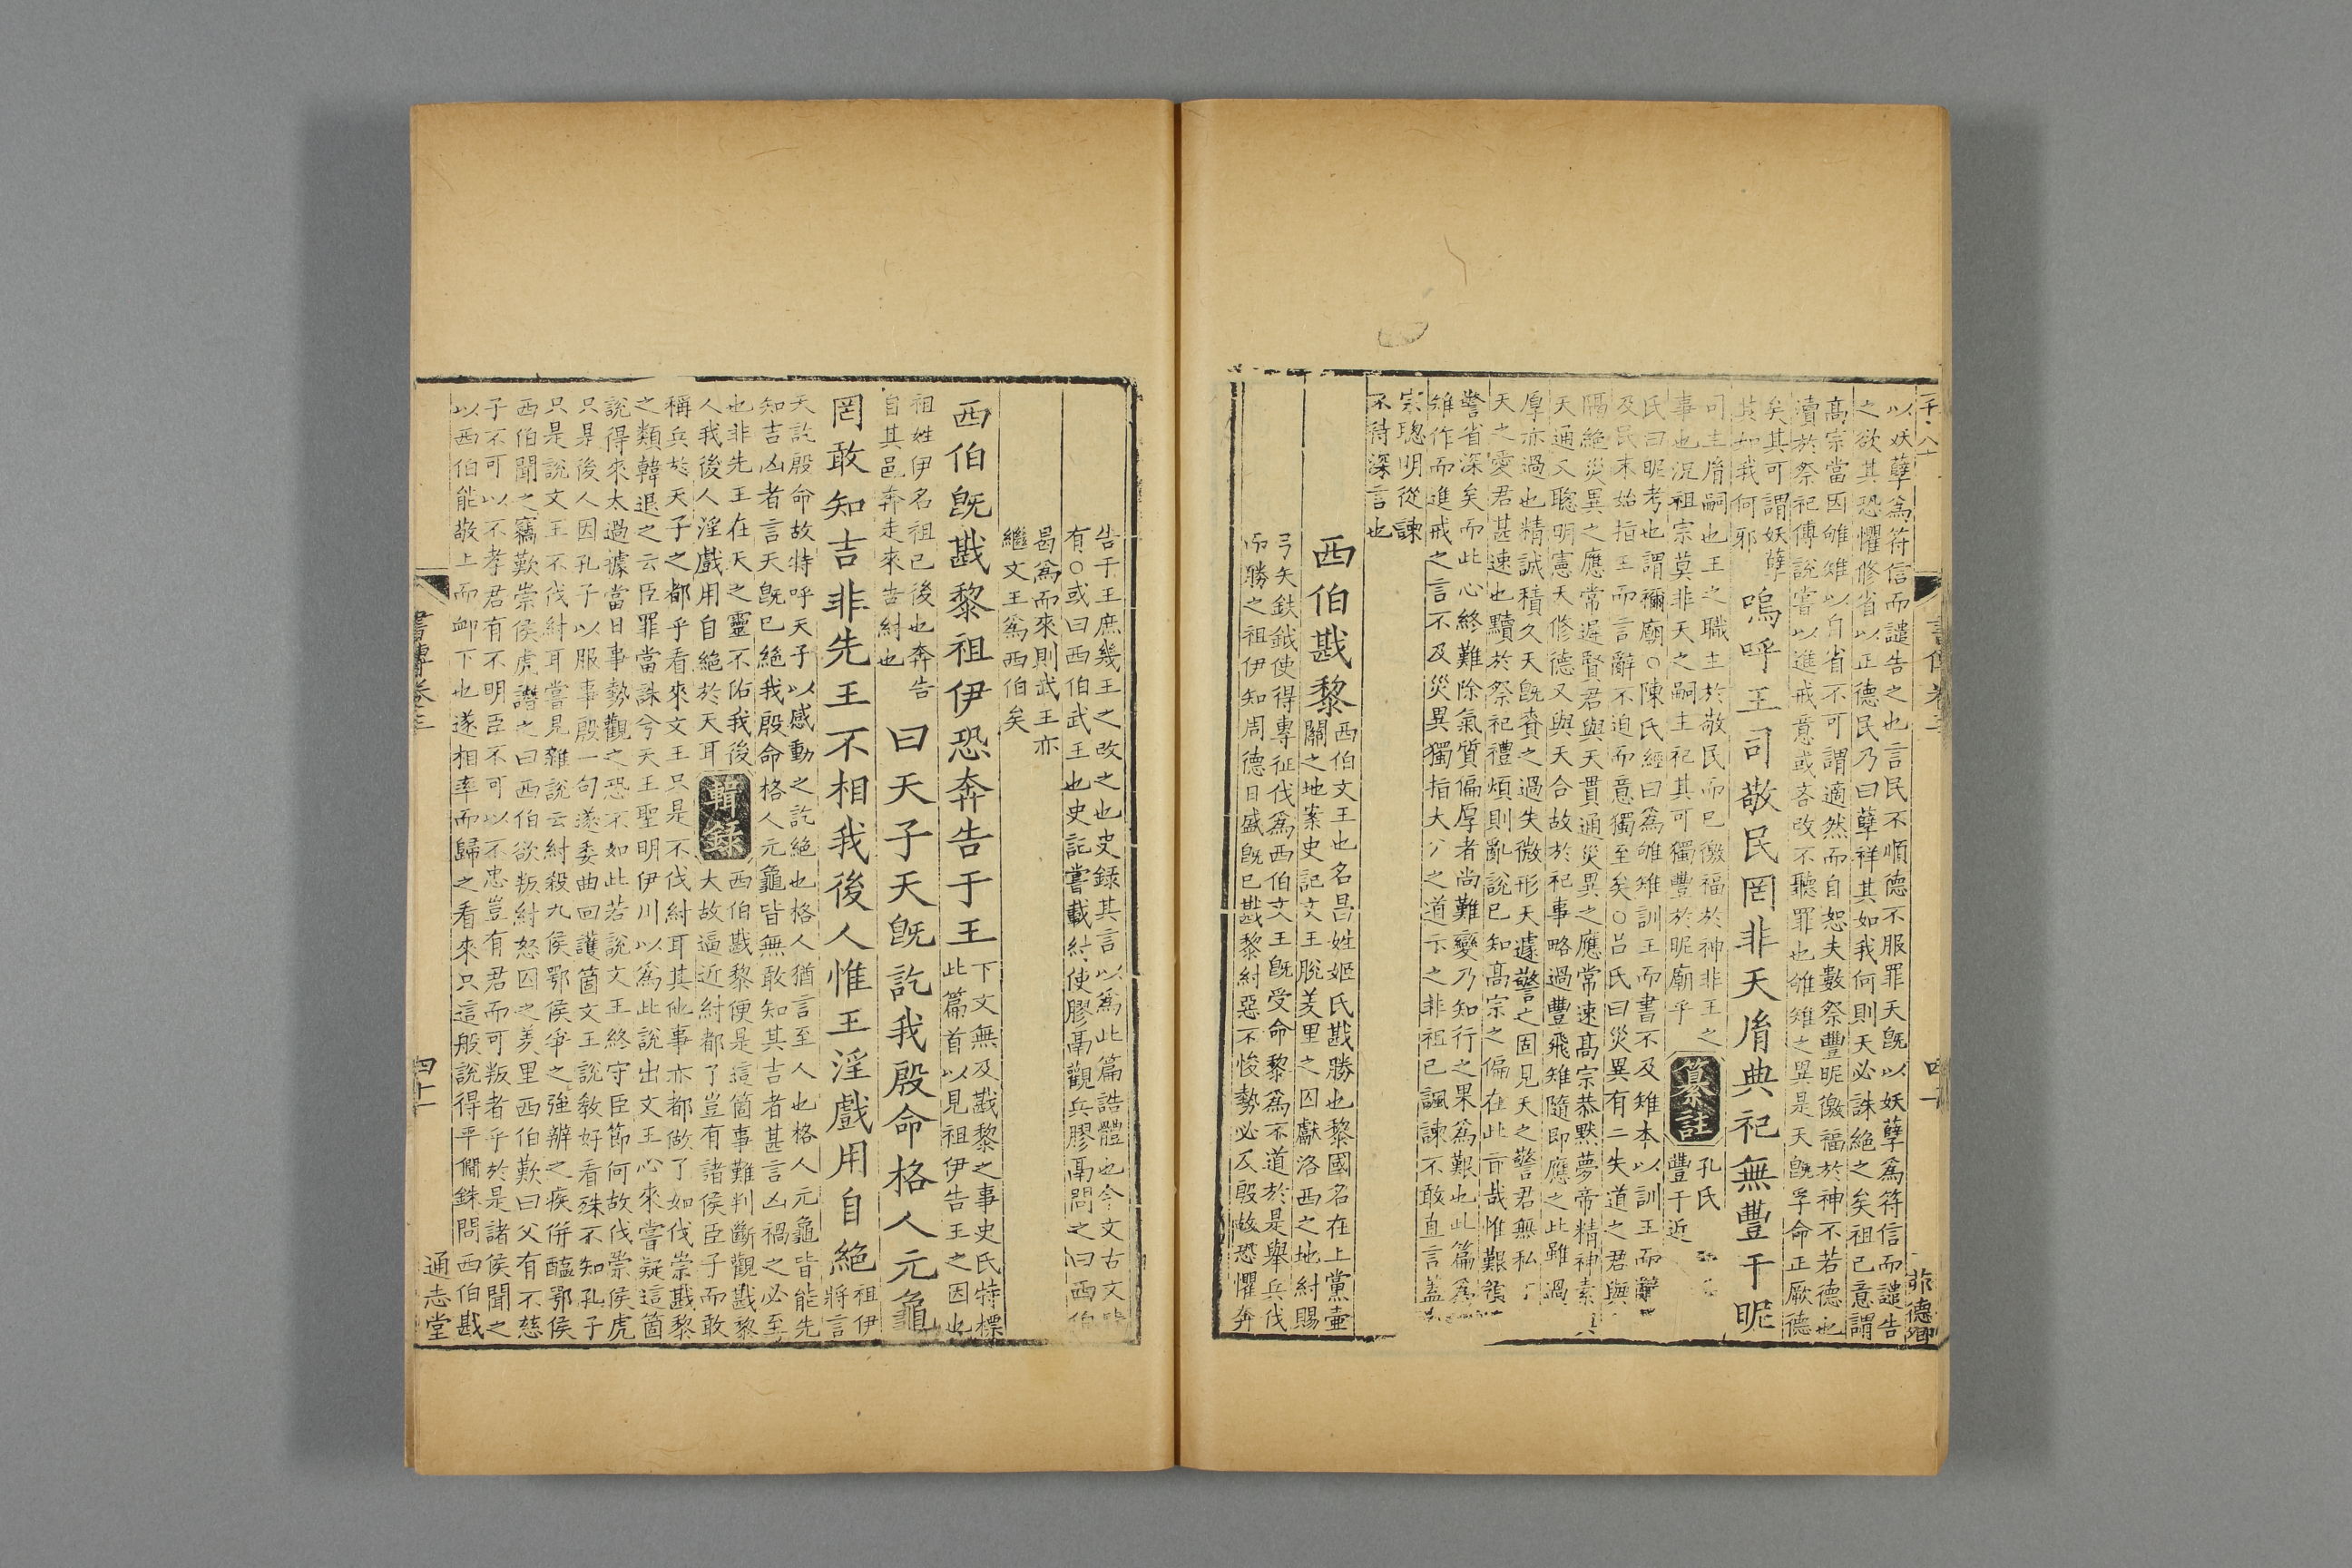 以妖孽爲符信而譴告之也言民不順德不服罪天旣以妖孽爲符信而譴告
之欲其恐懼修省以正德民乃曰孽祥其如我何則天必誅絶之矣祖已意謂
高宗當因雊雉以自省不可謂適然而自恕夫數祭豐昵徼福於神不若德也
瀆於祭祀傅說嘗以進戒意或吝改不聽罪也雊雉之異是天旣孚命正厥德
矣其可謂妖孽
其如我何邪
嗚呼王司敬民罔非天胤典祀無豐于昵
司主胤嗣也王之職主於敬民而已徼福於神非王之
事也況祖宗莫非天之嗣主祀其可獨豐於昵廟乎
纂註
孔氏
豐于近
氏曰昵考也謂禰廟○陳氏經曰爲雊雉訓王而書不及雉本以訓王而辭
及民末始指王而言辭不迫而意獨至矣○呂氏曰災異有二失道之君與
隔絶災異之應常遲賢君與天貫通災異之應常速高宗恭默夢帝精神素
天通又聰明憲天修德又與天合故於祀事略過豐飛雉隨即應之此雖過
厚亦過也精誠積久天旣賚之過失微形天遽警之固見天之警君無私
天之愛君甚速也黷於祭祀禮煩則亂說已知高宗之偏在此哉惟艱
警省深矣而此心終難除氣質偏厚者尚難變乃知行之果爲艱也此篇爲
雉作而進戒之言不及災異獨指大之道下之非祖已諷諫不敢直言蓋
宗聰明從諫
不待深言也
西伯戡黎
西伯文王也名昌姓姬氏戡勝也黎國名在上黨壷
關之地案史記文王脫羑里之囚獻洛西之地紂賜
弓矢鈇鉞使得專征伐爲西伯文王旣受命黎爲不道於是舉兵伐
而勝之祖伊知周德日盛旣已戡黎紂惡不悛勢必及殷故恐懼奔
告于王庶幾王之改之也史錄其言以爲此篇誥體也今文古文
有○或曰西伯武王也史記嘗載紂使膠鬲觀兵膠鬲問之曰西伯
曷爲而來則武王亦
繼文王爲西伯矣
西伯旣戡黎祖伊恐奔告于王
下文無及戡黎之事史氏特標
此篇首以見祖伊告王之因也
祖姓伊名祖已後也奔告
自其邑奔走來告紂也
曰天子天旣訖我殷命格人元龜
罔敢知吉非先王不相我後人惟王淫戲用自絶
祖伊
將言
天訖殷命故特呼天子以感動之訖絶也格人猶言至人也格人元龜皆能先
知吉凶者言天旣已絶我殷命格人元龜皆無敢知其吉者甚言凶禍之必至
也非先王在天之靈不佑我後
人我後人淫戲用自絶於天耳
輯錄
西伯戡黎便是這箇事難判斷觀戡黎
大故逼近紂都了豈有諸侯臣子而敢
稱兵於天子之都乎看來文王只是不伐紂耳其他事亦都做了如伐崇戡黎
之類韓退之云臣罪當誅兮天王聖明伊川以爲此說出文王心來嘗疑這箇
說得來太過據當日事勢觀之恐不如此若說文王終守臣節何故伐崇侯虎
只是後人因孔子以服事殷一句遂委曲回護箇文王說教好看殊不知孔子
只是說文王不伐紂耳嘗見雜說云紂殺九侯鄂侯爭之強辨之疾併醢鄂侯
西伯聞之竊歎崇侯虎譖之曰西伯欲叛紂怒囚之羑里西伯歎曰父有不慈
子不可以不孝君有不明臣不可以不忠豈有君而可叛者乎於是諸侯聞之
以西伯能敬上而卹下也遂相率而歸之看來只這般說得平 僩 銖問西伯戡
書傳卷三
四十一
通志堂